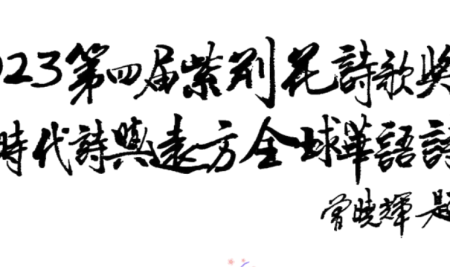 023第四届紫荆花詩歌奖
時代詩與遠方全球華語詩
曾曉輝 題